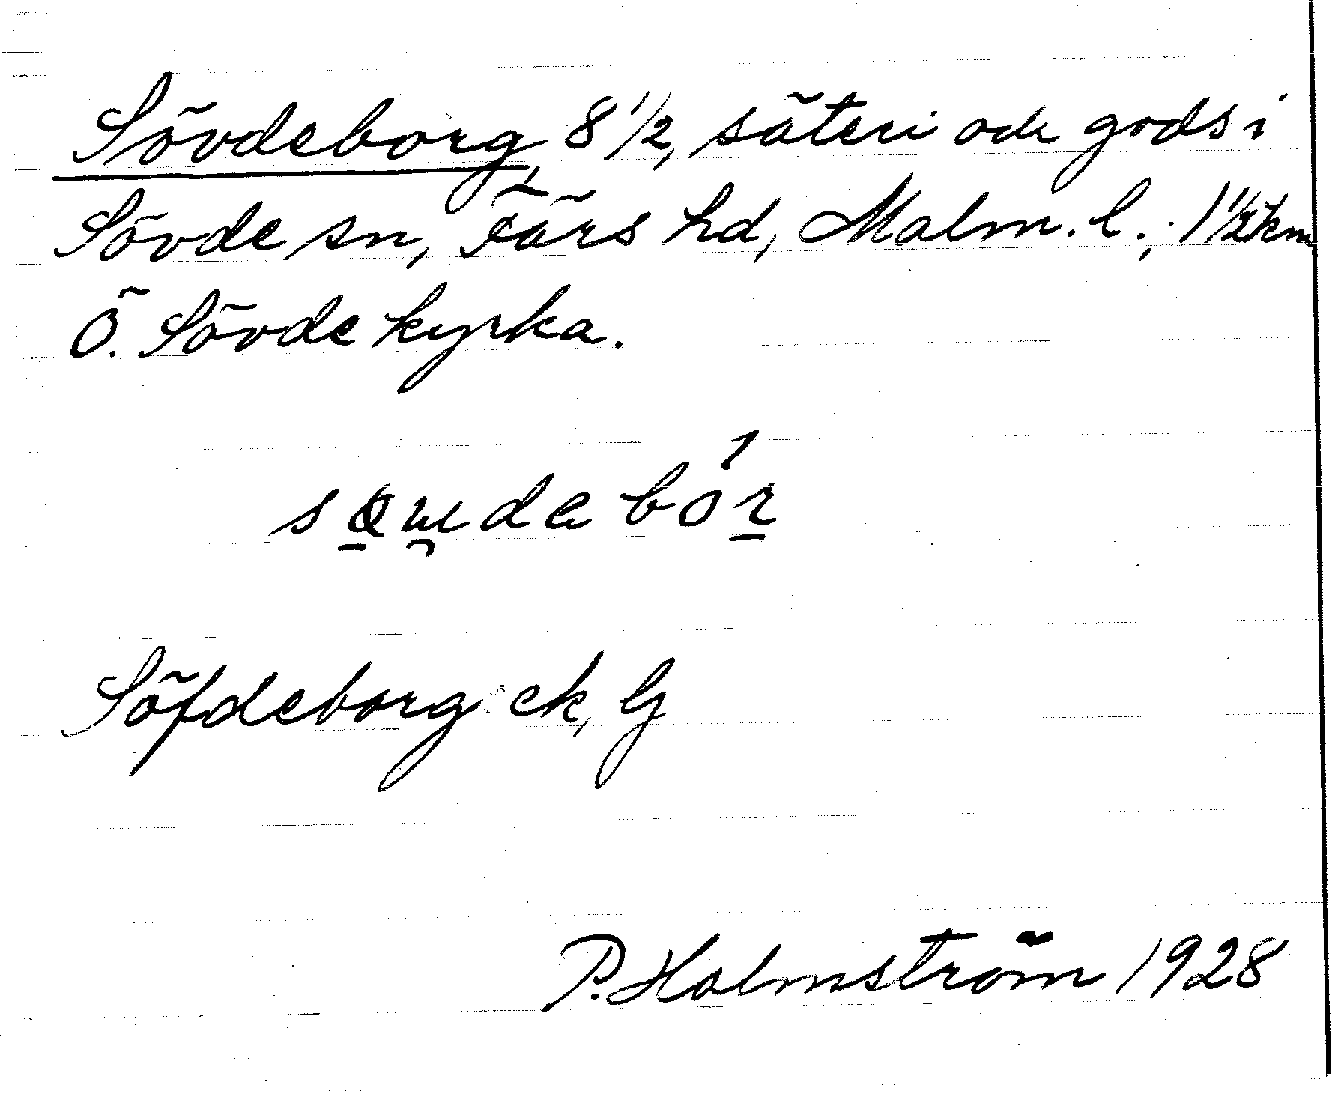 Sövdeborg 8 1/2, säteri och gods i
Sövde sn, Färs hd, Malm. l.; 1 1/2 km
Ö. Sövde kyrka.
Söfdeborg ek, G
P. Holmström 1928